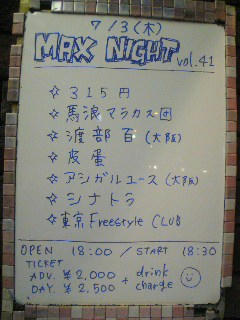 7/3(木)
MAX NIGHT vol.41
☆ 315円
☆ 馬浪マラカス団
☆ 渡部百(大阪)
☆ 皮蛋
☆ アシガルユース(大阪)
☆ シナトラ
☆ 東京Freestyle CLUB
OPEN 18:00 / START 18:30
TICKET
ADV. ¥2,000 + drink
DAY. ¥2,500 charge